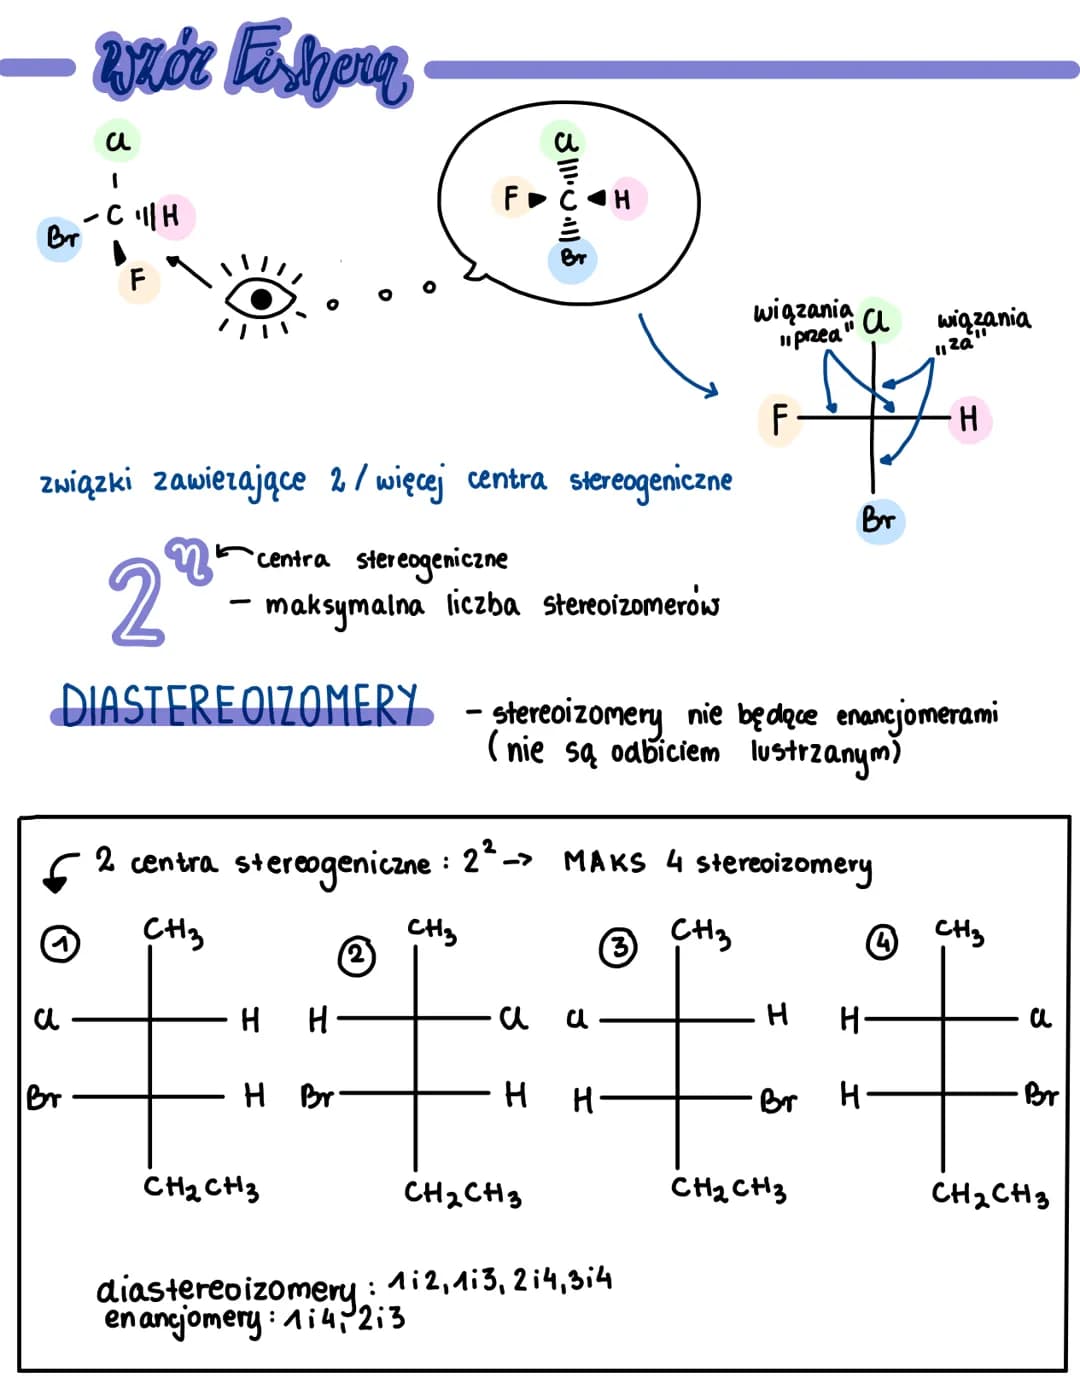 Wzór Fishera
Cl
Br - C H
F
Cl
F C H
Br
wiązania
"przed"
Cl
wiązania
"za"
F H
Br
związki zawierające 2/więcej centra stereogeniczne
2ⁿ centra stereogeniczne
- maksymalna liczba stereoizomerów
DIASTEREOIZOMERY - stereoizomery nie będące enancjomerami
(nie są odbiciem lustrzanym)
2 centra stereogeniczne : 2² -> MAKS 4 stereoizomery
1 CH₃ 2 CH₃ 3 CH₃ 4 CH₃
Cl H H Cl Cl H H Cl
Br H Br H H Br H Br
CH₂CH₃ CH₂CH₃ CH₂CH₃ CH₂CH₃
diastereoizomery : 1i2, 1i3, 2i4, 3i4
enancjomery : 1i4, 2i3